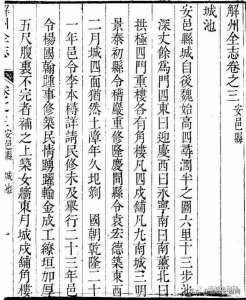 解州全志卷之三 安邑縣
城池
安邑縣城自後魏始高四尋周半之圍六里十三步池
深丈餘爲門四東曰迎慶西曰永寧南曰南薰北曰
拱極四門重樓各有角樓凡四戍舖凡九南城三明
景泰初縣令 嚴重修隆慶間縣令袁宏德築東西
二月城四面 然土障年久圮 國朝乾隆二十
一年邑令李本樗詳請民修未及舉行二十三年邑
令楊國翰踵事修築民情踴躍輸金成工繚垣加厚
五尺腹裏不完者補之上築女牆東月城戍舖角樓
解州全志 卷之三 安邑縣 城池 一